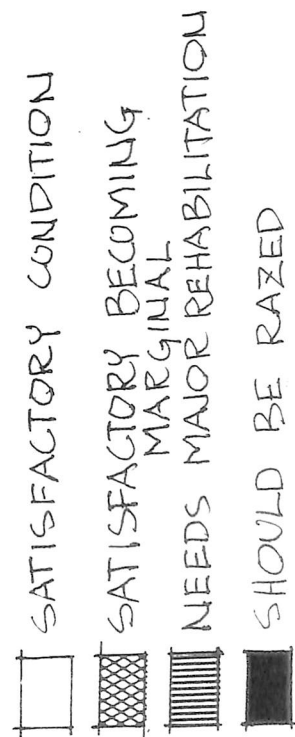 SATISFACTORY CONDITION
SATISFACTORY BECOMING
MARGINAL
NEEDS MAJOR REHABILITATION
SHOULD BE RAZED